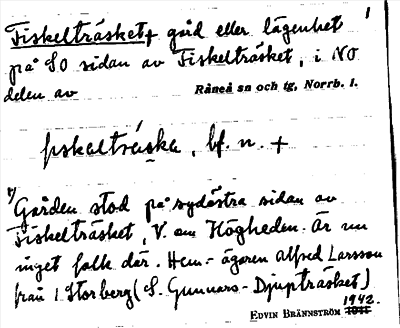 Fiskelträsket + gård eller lägenhet 1
på SO sidan av Fiskelträsket, i NO
delen av Råneå sn och tg, Norrb. l.
fiskelträska, bf. n. +
*) Gården stod på sydöstra sidan av
Fiskelträsket, V. om Högheden. Är nu
inget folk där. Hem.-ägaren Alfred Larsson
från 1 Storberg (S. Gunnars-Djupträsket)
EDVIN BRÄNNSTRÖM 1942.
1941